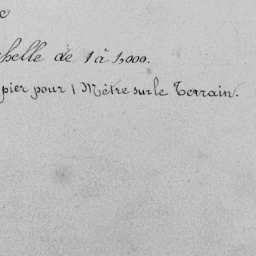 chelle de 1 à 5,000.
pier pour 1 Mètre sur le Terrain.